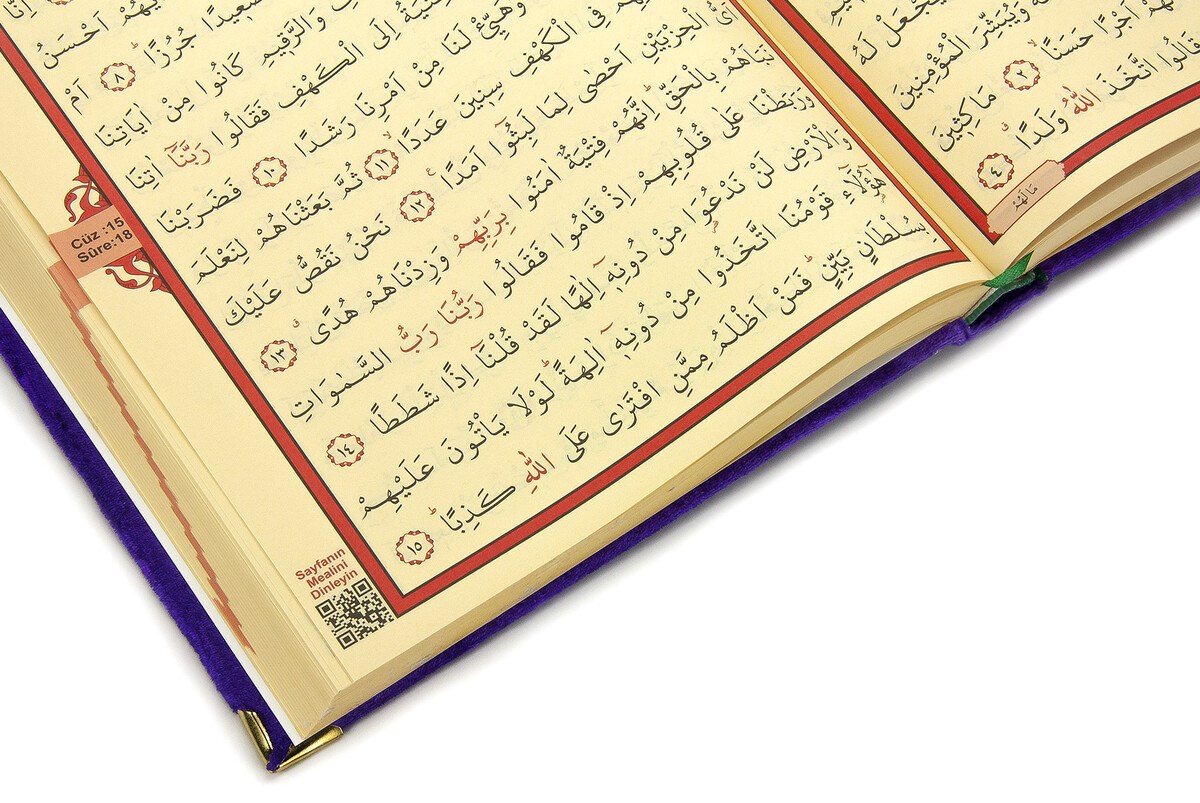 يَجْعَلْ لَهُ
وَيُبَشِّرَ الْمُؤْمِنِينَ
اَجْرًا حَسَنًاۙ ﴿٢﴾ مَاكِثِينَ
قَالُوا اتَّخَذَ اللّٰهُ وَلَدًاۗ ﴿٤﴾
مَا لَهُمْ
اَحْسَنُ
صَعِيدًا جُرُزًاۜ ﴿٨﴾ اَمْ
وَالرَّقِيمِ كَانُوا مِنْ اٰيَاتِنَا
اِلَى الْكَهْفِ فَقَالُوا رَبَّنَٓا اٰتِنَا
وَهَيِّئْ لَنَا مِنْ اَمْرِنَا رَشَدًا ﴿١٠﴾ فَضَرَبْنَا
فِي الْكَهْفِ سِنِينَ عَدَدًاۙ ﴿١١﴾ ثُمَّ بَعَثْنَاهُمْ لِنَعْلَمَ
اَيُّ الْحِزْبَيْنِ اَحْصٰى لِمَا لَبِثُٓوا اَمَدًا۟ ﴿١٢﴾ نَحْنُ نَقُصُّ عَلَيْكَ
نَبَاَهُمْ بِالْحَقِّۜ اِنَّهُمْ فِتْيَةٌ اٰمَنُوا بِرَبِّهِمْ وَزِدْنَاهُمْ هُدًىۗ ﴿١٣﴾
وَرَبَطْنَا عَلٰى قُلُوبِهِمْ اِذْ قَامُوا فَقَالُوا رَبُّنَا رَبُّ السَّمٰوَاتِ
وَالْاَرْضِ لَنْ نَدْعُوَا مِنْ دُونِه۪ٓ اِلٰهًا لَقَدْ قُلْنَٓا اِذًا شَطَطًا ﴿١٤﴾
هٰٓؤُ۬لَٓاءِ قَوْمُنَا اتَّخَذُوا مِنْ دُونِه۪ٓ اٰلِهَةًۜ لَوْلَا يَأْتُونَ عَلَيْهِمْ
بِسُلْطَانٍ بَيِّنٍۜ فَمَنْ اَظْلَمُ مِمَّنِ افْتَرٰى عَلَى اللّٰهِ كَذِبًاۜ ﴿١٥﴾
Cüz :15
Sûre:18
Sayfanın
Mealini
Dinleyin